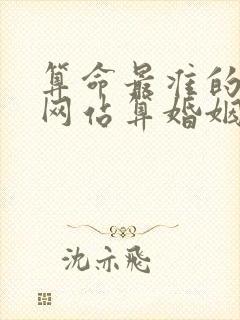 算命最准的
网占算婚姻
沈亦飛